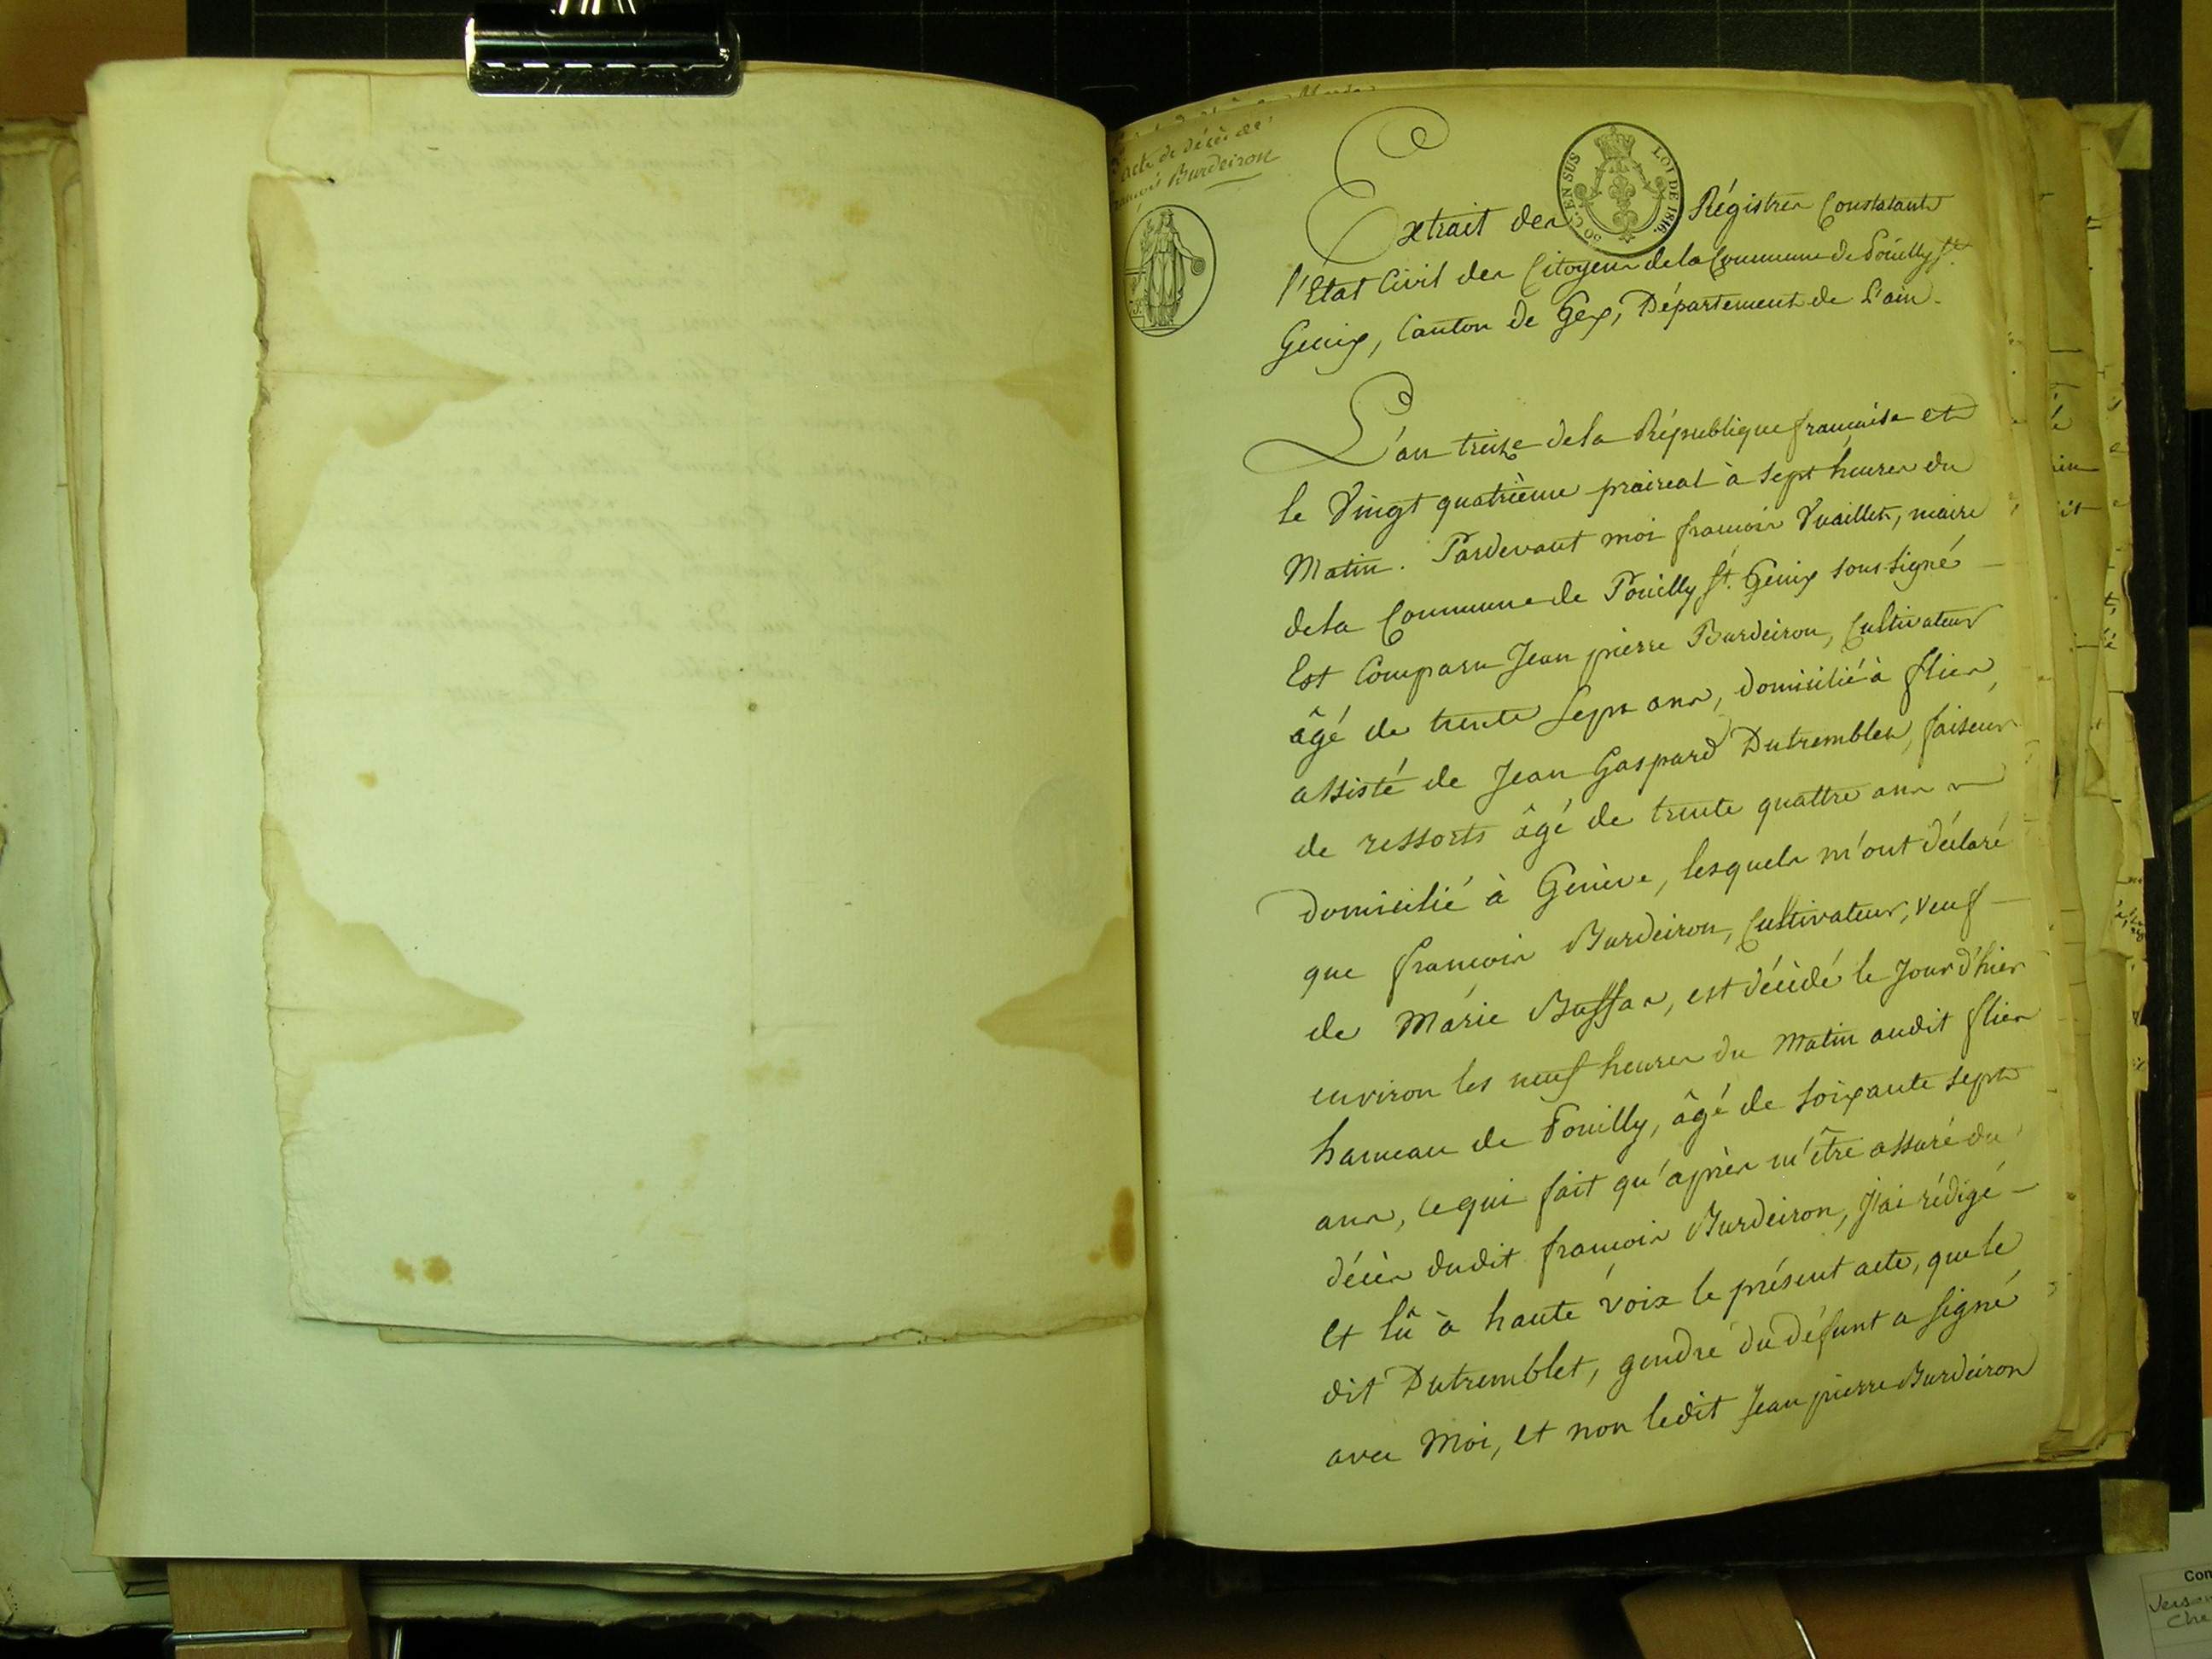 acte de décès de
françois Burdeiron
50 C. EN SUS
LOI DE 1816.
Extrait des Régistres Constatants
l'État Civil des Citoyens de la Commune de Pouilly St.
Genix, Canton de Gex, Département de L'ain.
L'an treize de la République française et
le Vingt quatrième praireal à sept heures du
Matin. Pardevant moi françois Vuaillet, maire
de la Commune de Pouilly St. Genix sous-signé
Est Comparu Jean pierre Burdeiron, Cultivateur
âgé de trente Sept ans, domicilié à flies,
assisté de Jean Gaspard Dutremblet, faiseur
de ressorts âgé de trente quattre ans
domicilié à Genève, lesquels m'ont déclaré
que françois Burdeiron, Cultivateur, veuf
de Marie Bussas, est décédé le Jour d'hier
environ les neuf heures du Matin audit flies
hameau de Pouilly, âgé de soixante sept
ans, ce qui fait qu'après m'être assuré du
décès dudit françois Burdeiron, j'ai rédigé
et lû à haute voix le présent acte, que le
dit Dutremblet, gendre du défunt a signé
avec Moi, et non ledit Jean pierre Burdeiron